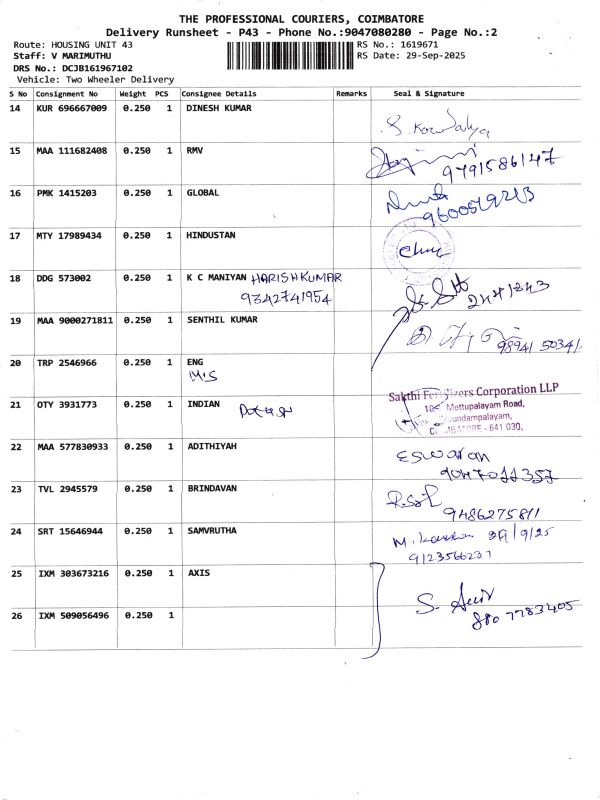 THE PROFESSIONAL COURIERS, COIMBATORE
Delivery Runsheet - P43 - Phone No.:9047080280 - Page No.:2
Route: HOUSING UNIT 43 RS No.: 1619671
Staff: V MARIMUTHU RS Date: 29-Sep-2025
DRS No.: DCJB161967102
Vehicle: Two Wheeler Delivery
S No Consignment No Weight PCS Consignee Details Remarks Seal & Signature
14 KUR 696667009 0.250 1 DINESH KUMAR
15 MAA 111682408 0.250 1 RMV
9791586147
16 PMK 1415203 0.250 1 GLOBAL
17 MTY 17989434 0.250 1 HINDUSTAN
18 DDG 573002 0.250 1 K C MANIYAN HARISHKUMAR
9342741954
19 MAA 9000271811 0.250 1 SENTHIL KUMAR
98941 50341
20 TRP 2546966 0.250 1 ENG
M/S
21 OTY 3931773 0.250 1 INDIAN
Sakthi Fertilizers Corporation LLP
Mettupalayam Road,
COIMBATORE - 641 030.
22 MAA 577830933 0.250 1 ADITHIYAH
Eswaran
23 TVL 2945579 0.250 1 BRINDAVAN
9486275811
24 SRT 15646944 0.250 1 SAMVRUTHA
29/9/25
25 IXM 303673216 0.250 1 AXIS
26 IXM 509056496 0.250 1
880 7783405